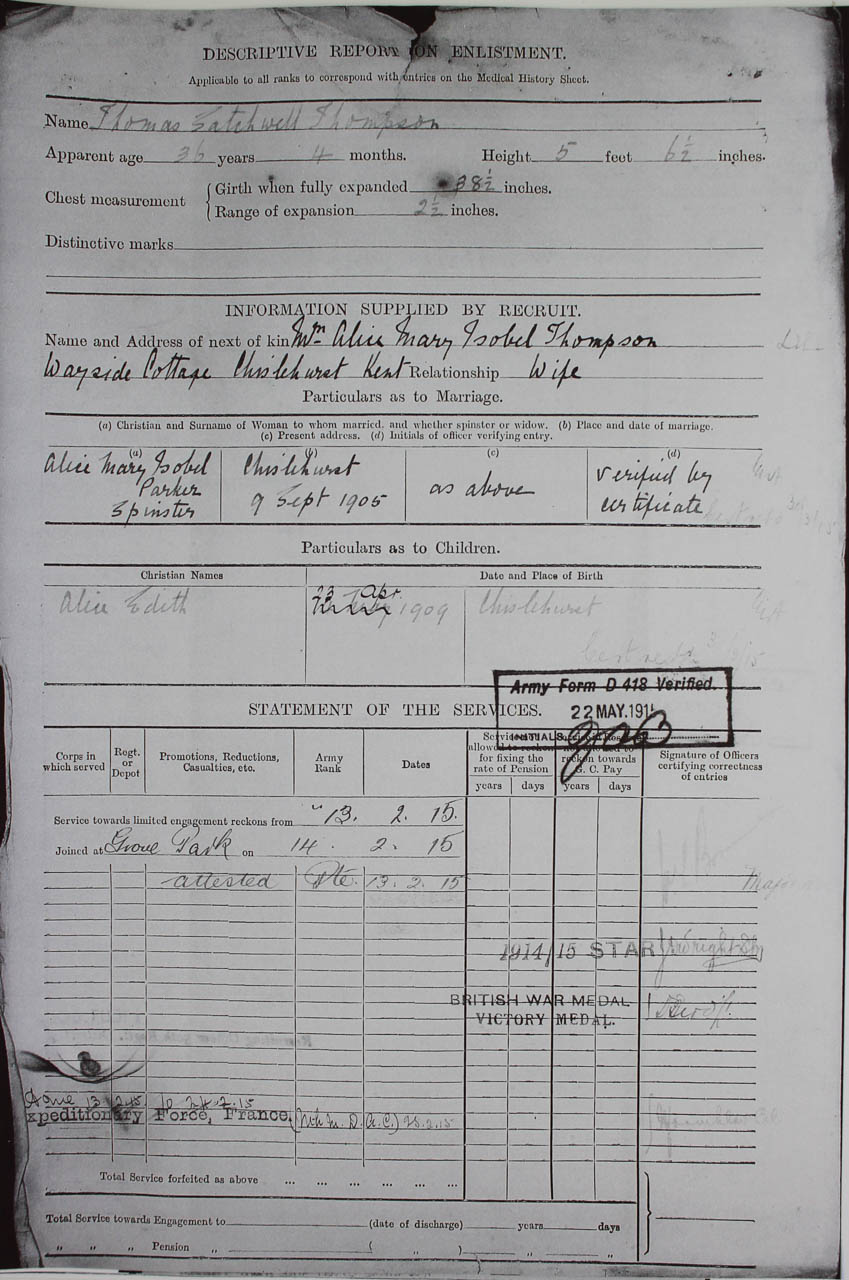 DESCRIPTIVE REPORT ON ENLISTMENT.
Applicable to all ranks to correspond with entries on the Medical History Sheet.
Name Thomas Satchwell Thompson
Apparent age 36 years 4 months. Height 5 feet 6½ inches.
Chest measurement { Girth when fully expanded 38½ inches.
Range of expansion 2½ inches.
Distinctive marks
INFORMATION SUPPLIED BY RECRUIT.
Name and Address of next of kin Mrs Alice Mary Isobel Thompson
Wayside Cottage Chislehurst Kent Relationship Wife
Particulars as to Marriage.
(a) Christian and Surname of Woman to whom married, and whether spinster or widow. (b) Place and date of marriage.
(c) Present address. (d) Initials of officer verifying entry.
(a) (b) (c) (d)
Alice Mary Isobel Parker Spinster
Chislehurst 9 Sept 1905
as above
Verified by certificate
Particulars as to Children.
Christian Names Date and Place of Birth
Alice Edith 23 Apr. 1909 Chislehurst
Army Form D 418 Verified.
22 MAY.191
INITIALS
STATEMENT OF THE SERVICES.
Corps in which served
Regt. or Depot
Promotions, Reductions, Casualties, etc.
Army Rank
Dates
allowed to reckon for fixing the rate of Pension
reckon towards G. C. Pay
Signature of Officers certifying correctness of entries
years days years days
Service towards limited engagement reckons from 13. 2. 15.
Joined at Grove Park on 14. 2. 15
attested Pte. 13. 2. 15
Major
1914/15 STAR
BRITISH WAR MEDAL
VICTORY MEDAL.
Home 13.2.15 to 24.2.15
xpeditionary Force, France, 25.2.15
Total Service forfeited as above ... ... ... ... ... ...
Total Service towards Engagement to (date of discharge) years days
„ „ „ Pension „ ( „ ) „ „